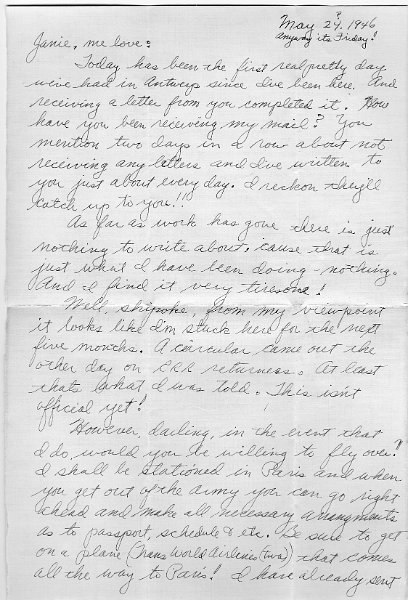 ?
May 24, 1946
Anyway its Friday!
Janie, me love:
Today has been the first real pretty day
we've had in Antwerp since I've been here. And
receiving a letter from you completed it. How
have you been receiving my mail? You
mention two days in a row about not
receiving any letters and I've written to
you just about every day. I reckon they'll
catch up to you!!
As far as work has gone there is just
nothing to write about, cause that is
just what I have been doing - nothing.
And I find it very tiresome!
Well, from my viewpoint
it looks like I'm stuck here for the next
five months. A circular came out the
other day on returness. At least
thats what I was told. This isn't
official yet!
However, darling, in the event that
I do, would you be willing to fly over?
I shall be stationed in Paris and when
you get out of the army you can go right
ahead and make all necessary arrangments
as to passport, schedule & etc. Be sure to get
on a plane (Trans World Airlines (twa)) that comes
all the way to Paris! I have already sent